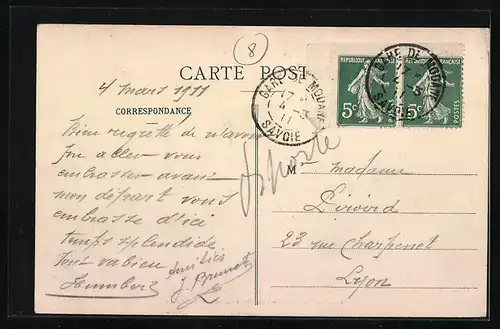 8
CARTE POSTALE
4 mars 1911
CORRESPONDANCE
Bien regretté de n'avoir
pu aller vous
embrasser avant
mon départ vous
embrasse d'ici
temps splendide
tout va bien
Humbert
amitiés
J. Brunet
GARE DE MODANE
17
4 - 3
11
SAVOIE
REPUBLIQUE FRANÇAISE
5c
POSTES
REPUBLIQUE FRANÇAISE
5c
POSTES
GARE DE MODANE
SAVOIE
M
Madame
23 rue Charpenet
Lyon